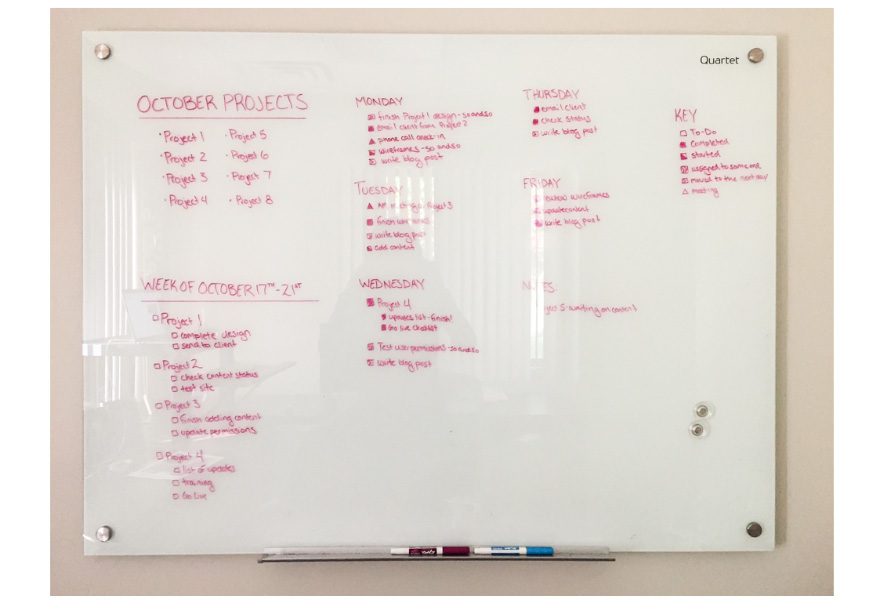 Quartet
OCTOBER PROJECTS
Project 1
Project 2
Project 3
Project 4
Project 5
Project 6
Project 7
Project 8
WEEK OF OCTOBER 17TH-21ST
Project 1
complete design
send to client
Project 2
check content status
test site
Project 3
finish adding content
update permissions
Project 4
list of updates
training
Go live
MONDAY
finish Project 1 design - so and so
email client from Project 2
phone call check-in
wireframes - so and so
write blog post
TUESDAY
meeting Project 3
finish
write blog post
add content
WEDNESDAY
Project 4
updates list - finish!
Go live checklist
Test user permissions - so and so
write blog post
THURSDAY
email client
check status
write blog post
FRIDAY
wireframes
update content
write blog post
NOTES:
Project 5 - waiting on content
KEY
To-Do
completed
started
assigned to someone
moved to the next day
meeting